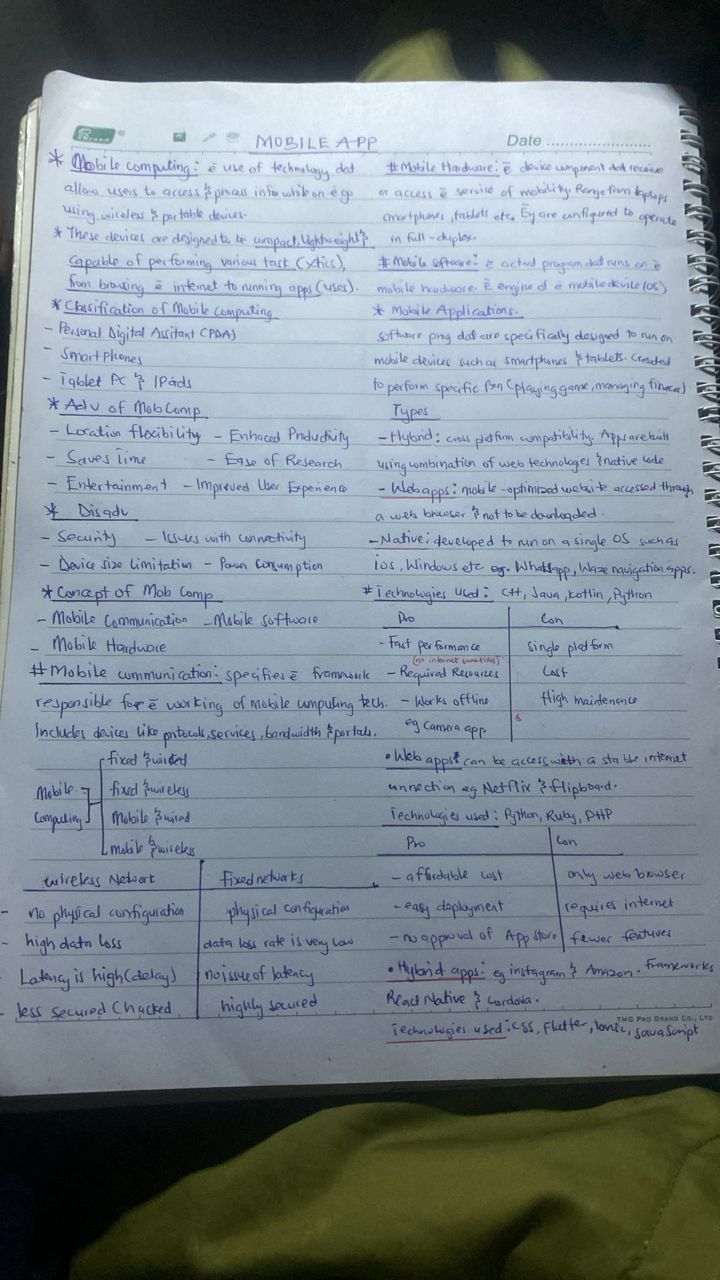 MOBILE APP
Date
* Mobile computing: ē use of technology dat
allow users to access & process info while on ē go
using wireless & portable devices.
* These devices are designed to be compact, lightweight &
capable of performing various task (Xtics),
from browsing ē internet to running apps (uses).
* Classification of Mobile Computing
- Personal Digital Assitant (PDA)
- Smart Phones
- Tablet PC & IPads
* Adv of Mob Comp
- Location flexibility - Enhaced Productivity
- Saves Time - Ease of Research
- Entertainment - Improved User Experience
* Disadv
- Security - Issues with connectivity
- Device size limitation - Power Consumption
* Concept of Mob Comp
- Mobile Communication - Mobile software
- Mobile Hardware
# Mobile communication: specifies ē framework
responsible for ē working of mobile computing tech.
Includes devices like protocols, services, bandwidth & portals.
Mobile Computing
fixed & wired
fixed & wireless
Mobile & wired
mobile & wireless
Wireless Network | Fixed networks
- no physical configuration | physical configuration
- high data loss | data loss rate is very low
- Latency is high (delay) | no issue of latency
- less secured (hacked) | highly secured
# Mobile Hardware: ē device component dat receive
or access ē service of mobility. Range from laptops
smartphones, tablets etc. Ēy are configured to operate
in full-duplex.
# Mobile software: ē actual program dat runs on ē
mobile hardware. Ē engine of ē mobile device (OS)
* Mobile Applications.
software prog dat are specifically designed to run on
mobile devices such as smartphones & tablets. Created
to perform specific fxn (playing game, managing finances)
Types
- Hybrid: cross platform compatibility. Apps are built
using combination of web technologies & native code
- Web apps: mobile-optimized website accessed through
a web browser & not to be downloaded.
- Native: developed to run on a single OS such as
iOS, Windows etc eg. Whatsapp, Waze navigation apps.
# Technologies Used: C++, Java, Kotlin, Python
Pro | Con
- Fast performance | single platform
(no internet functions)
- Required Resources | Cost
- Works offline | High maintenance
eg Camera app
• Web apps: can be access with a stable internet
connection eg Netflix & flipboard.
Technologies used: Python, Ruby, PHP
Pro | Con
- affordable cost | only web browser
- easy deployment | requires internet
- no approval of App Store | fewer features
• Hybrid apps: eg instagram & Amazon. Frameworks
React Native & Cordova.
TMG PRO GRAND CO., LTD
Technologies used: CSS, Flutter, Ionic, JavaScript